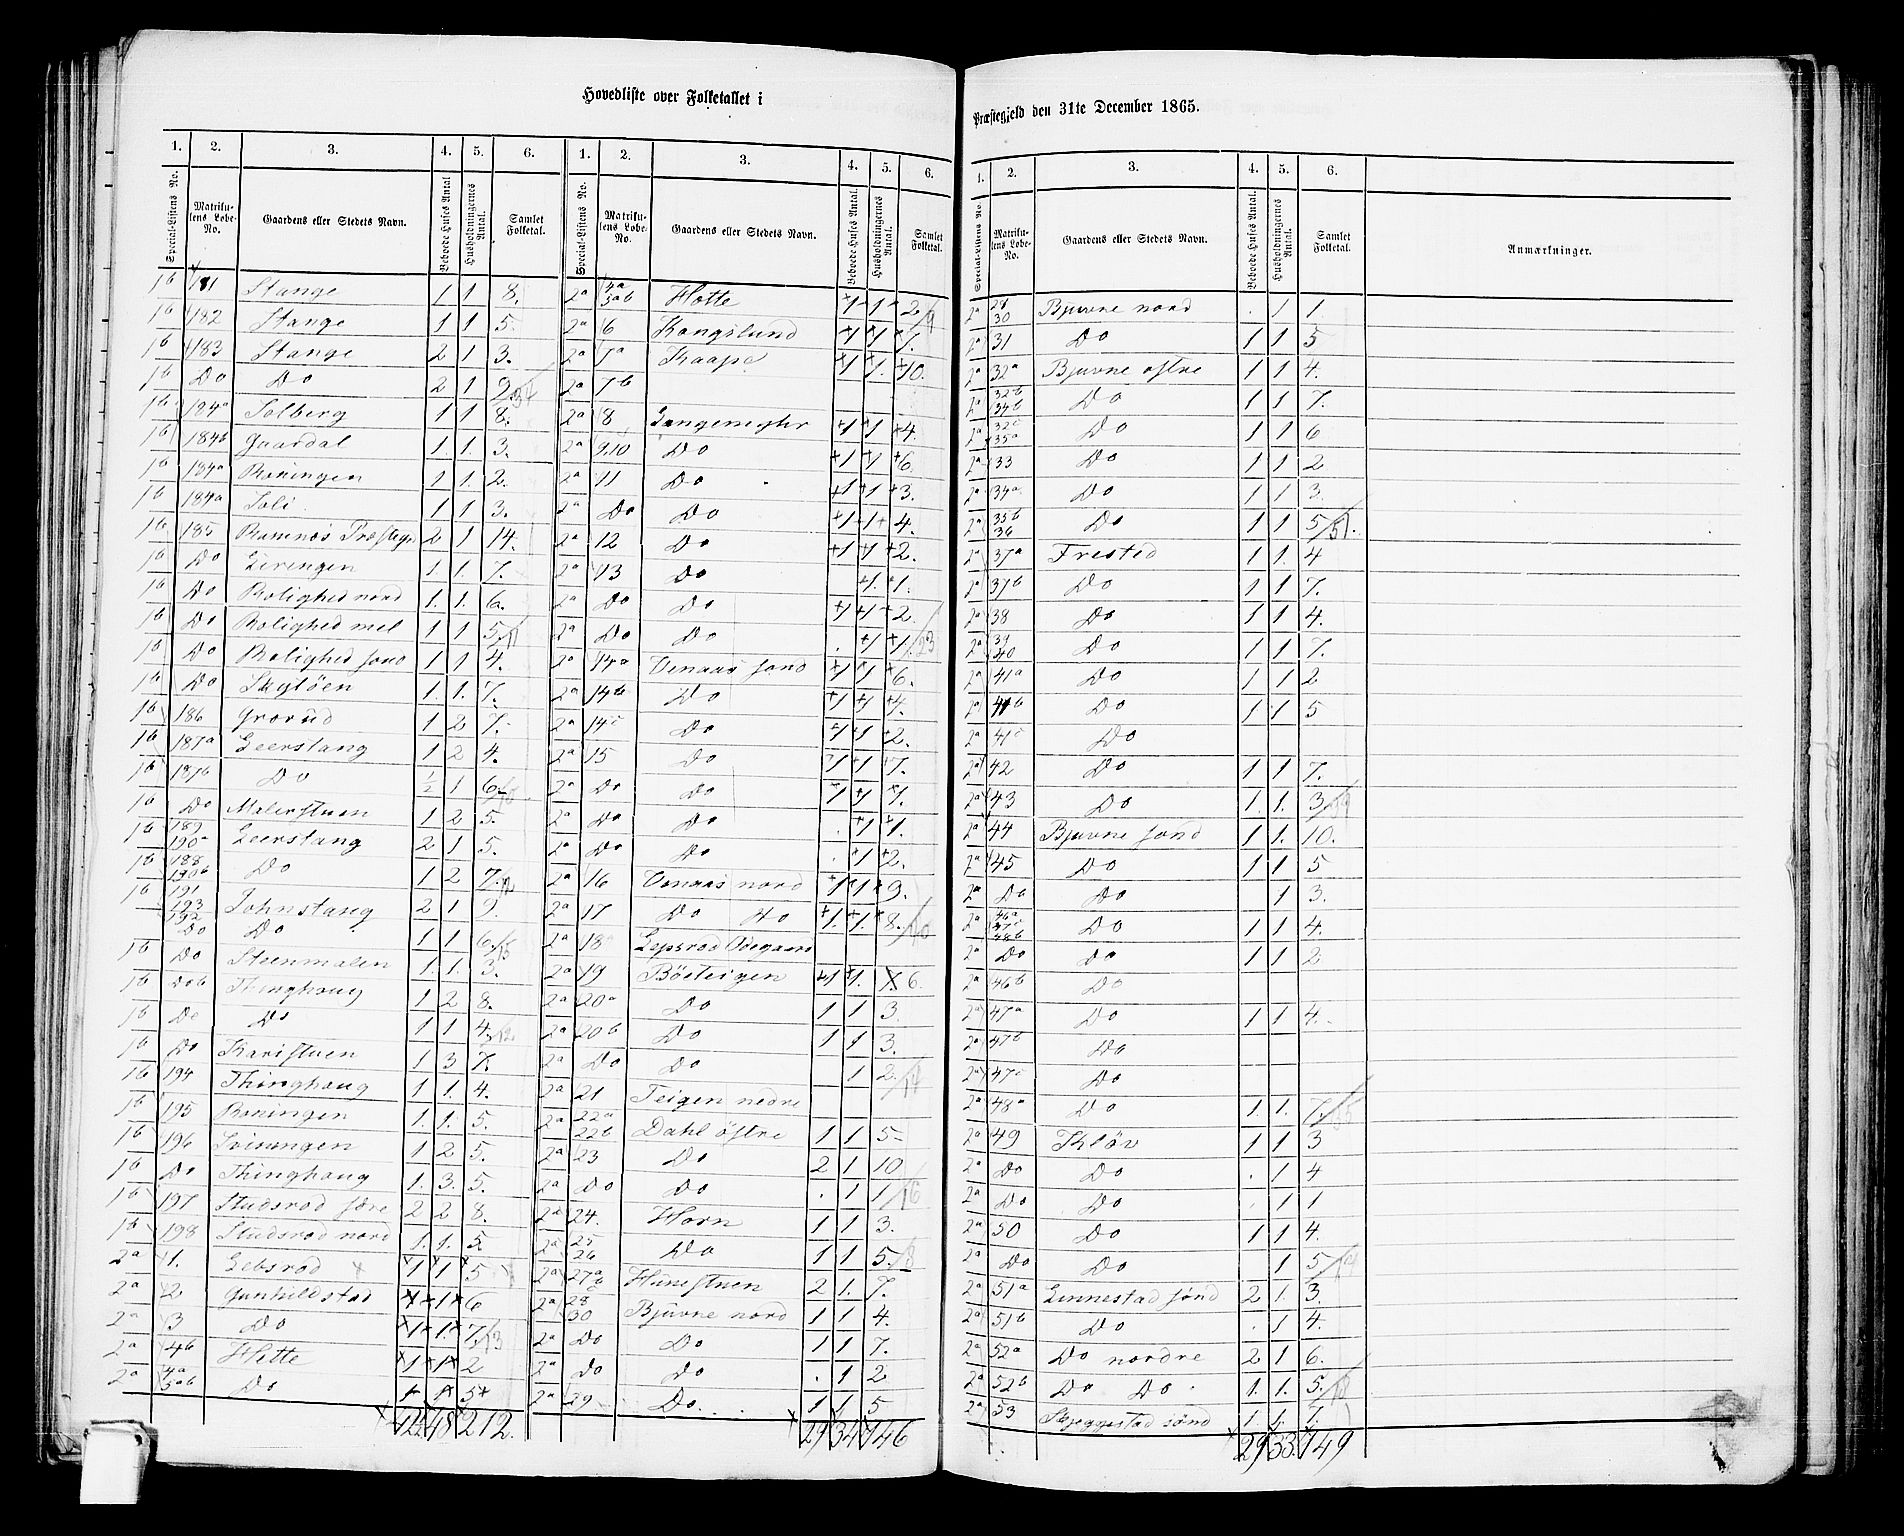 Hovedliste over Folketallet i
Præstegjeld den 31te December 1865.
1. 2. 3. 4. 5. 6.
Special-Listens No. Matrikulens Løbe-No. Gaardens eller Stedets Navn. Beboede Huses Antal Husholdningernes Antal. Samlet Folketal.
1b 181 Stange 1 1 8.
1b 182 Stange 1 1 5.
1b 183 Stange 2 1 3.
1b Do Do 2 1 9
1b 184a Solberg 1 1 8.
1b 184b Guardal 1. 1. 3.
1b 184a Roningen 1 1. 2.
1b 184a Soli 1 1 3.
1b 185 Ramnæs 2 1 14.
1b Do Leringen 1. 1. 7.
1b Do Rolighed nord 1. 1. 6.
1b Do Rolighed mel 1 1 5.
1b Do Rolighed sønd 1 1 4.
1b Do 1. 1. 7.
1b 186 Grorud 1 2 7.
1b 187a Leerstang 1 2 4.
1b 187b Do ½ 1 6.
1b Do Malerstuen 1 2 5.
1b 189 190a Leerstang 2 1 5.
1b 188 190b Do 1 2 7.
1b 191 193 Johnstang 2 1 9.
192 Do Do 1 1 6.
1b Do Steenmalen 1. 1. 3.
1b Do Thinghoug 1 2 8.
1b Do Do 1 1 4.
1b Do Karistuen 1 3 7.
1b 194 Thinghoug 1 1. 4.
1b 195 Roningen 1. 1. 5.
1b 196 Sviningen 1 2 5.
1b Do Thinghoug 1. 3. 5.
1b 197 Studsrød 2 2 8.
1b 198 Studsrød nord 1. 1. 5.
2a 1. Lebsrød 1 1 5
2a 2 Gunhildstad 1 1 6
2a 3 Do 1 1. 7.
2a 4b Hotte 1 1 2
2a 4a 5ab Do 1 1 5
42 48 212.
1. 2. 3. 4. 5. 6.
Special-Listens No. Matrikulens Løbe-No. Gaardens eller Stedets Navn. Beboede Huses Antal. Husholdningernes Antal. Samlet Folketal.
2a 4a 5ab Hotte 1 1 2
2a 6 Kongslund 1 1 7.
2a 7a Kaape 1 1. 10.
2a 7b
2a 8 1 1 4.
2a 9.10 Do 1 1 6.
2a 11 Do 1 1 3.
2a Do Do 1 1 4.
2a 12 Do 1 1 2.
2a 13 Do 1. 1.
2a Do Do 1 1 2.
2a Do Do . 1 1.
2a 14a Venaas sønd 1 1 6.
2a 14b Do 1 1 4.
2a 14c Do 1 1 2.
2a 15 Do 1 1 7.
2a Do Do 1 1 1.
2a Do Do . 1 1.
2a Do Do . 1 2.
2a 16 Venaas nord 1 1 9.
2a 17 Do Do 1. 1. 8.
2a 18 Lepsrød Ødegaard
2a 19 Bösteigen 1 1. 6.
2a 20a Do 1 1 3.
2a 20b Do 1 1 3.
2a Do Do 1 2
2a 21 Teigen nedre
2a 22a 22b Dahl östre 1 1 5
2a 23 Do 2 1. 10
2a Do Do . 1 1
2a 24. Horn 1 1 3.
2a 25 26 Do 1 1 5.
2a 27a b Hünestuen 2 1. 7.
2a 28 30 Bjurne nord 1 1 4.
2a Do Do 1 1 7.
2a Do Do . 1 2
2a 29 Do 1 1 5
29 34 146
1. 2. 3. 4. 5. 6.
Special-Listens No. Matrikulens Løbe-No. Gaardens eller Stedets Navn. Beboede Huses Antal. Husholdningernes Antal. Samlet Folketal. Anmærkninger.
2a 28 30 Bjurne nord . 1 1.
2a 31 Do 1 1 5
2a 32a Bjurne østre 1 1 4.
2a 32b 34b Do 1 1 7.
2a 32c 35a Do 1 1 6
2a 33 Do 1 1 2
2a 34a Do 1 1 3.
2a 35b 36 Do 1 1 5
2a 37a Frested 1 1. 4
2a 37b Do 1 1 7.
2a 38 Do 1 1 4.
2a 39 40 Do 1 1 7.
2a 41a Do 1 1 2
2a 41b Do 1 1 5
2a 41c Do
2a 42 Do 1 1 7.
2a 43 Do 1. 1. 3
2a 44 Bjurne sønd 1 1. 10.
2a 45 Do 1 1 5
2a Do Do 1 3.
2a 46a 47c 48b Do 1 1 4.
2a Do Do 1 1 2
2a 46b Do
2a 47a Do 1 1 4.
2a 47b Do
2a 47c Do
2a 48a Do 1. 1. 7.
2a 49 Kløv 1 1 3
2a Do Do . 1 4
2a Do Do . 1 1
2a 50 Do 1 1 4.
2a Do Do 1 5
2a 51a Linnestad sønd 2 1. 3.
2a 51b Do . 1 4.
2a 52a Do nordre 2 1 6.
2a 52b Do Do 1. 1. 5.
2a 53 Skjeggestad sønd 1 1. 7.
29 33 149